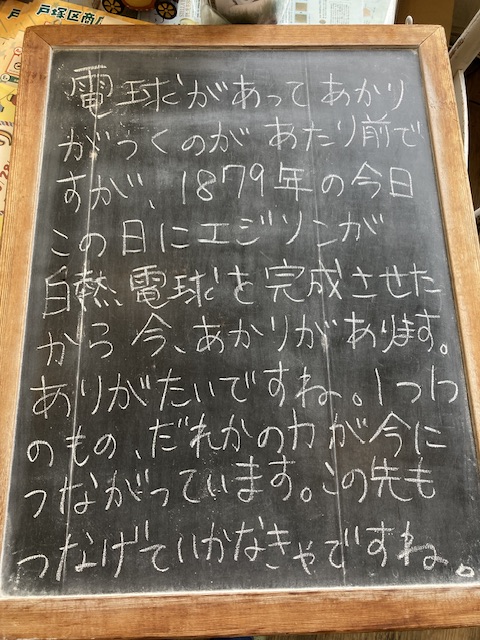 戸塚区商店
電球があって あかり
がつくのが あたり前で
すが、1879年の今日
この日にエジソンが
白熱電球を完成させた
から 今、あかりがあります。
ありがたいですね。1つ1つ
のもの、だれかの力が今に
つながっています。この先も
つなげていかなきゃですね。